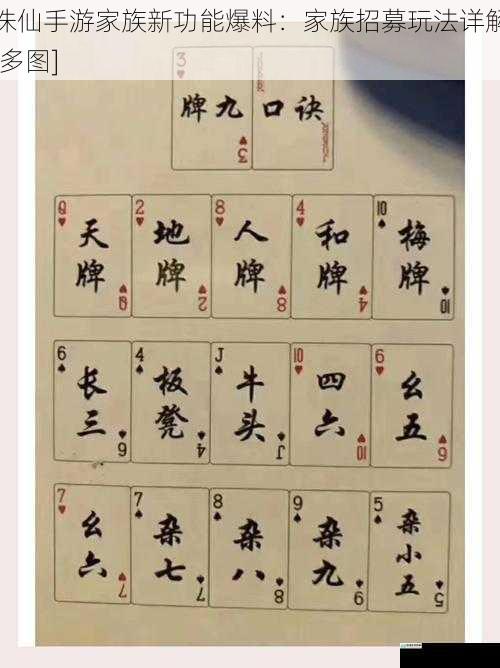 诛仙手游家族新功能爆料：家族招募玩法详解
[多图]
3 JOKER
牌九 口诀
3 JOKER
Q 2 8 4 10
天牌 地牌 人牌 和牌 梅牌
Q 2 8 4 10
6 4 J 10 6
长三 板凳 牛头 四六 幺五
6 4 J 10 6
7 7 8 9 5
幺六 杂七 杂八 杂九 杂小五
7 7 8 9 5